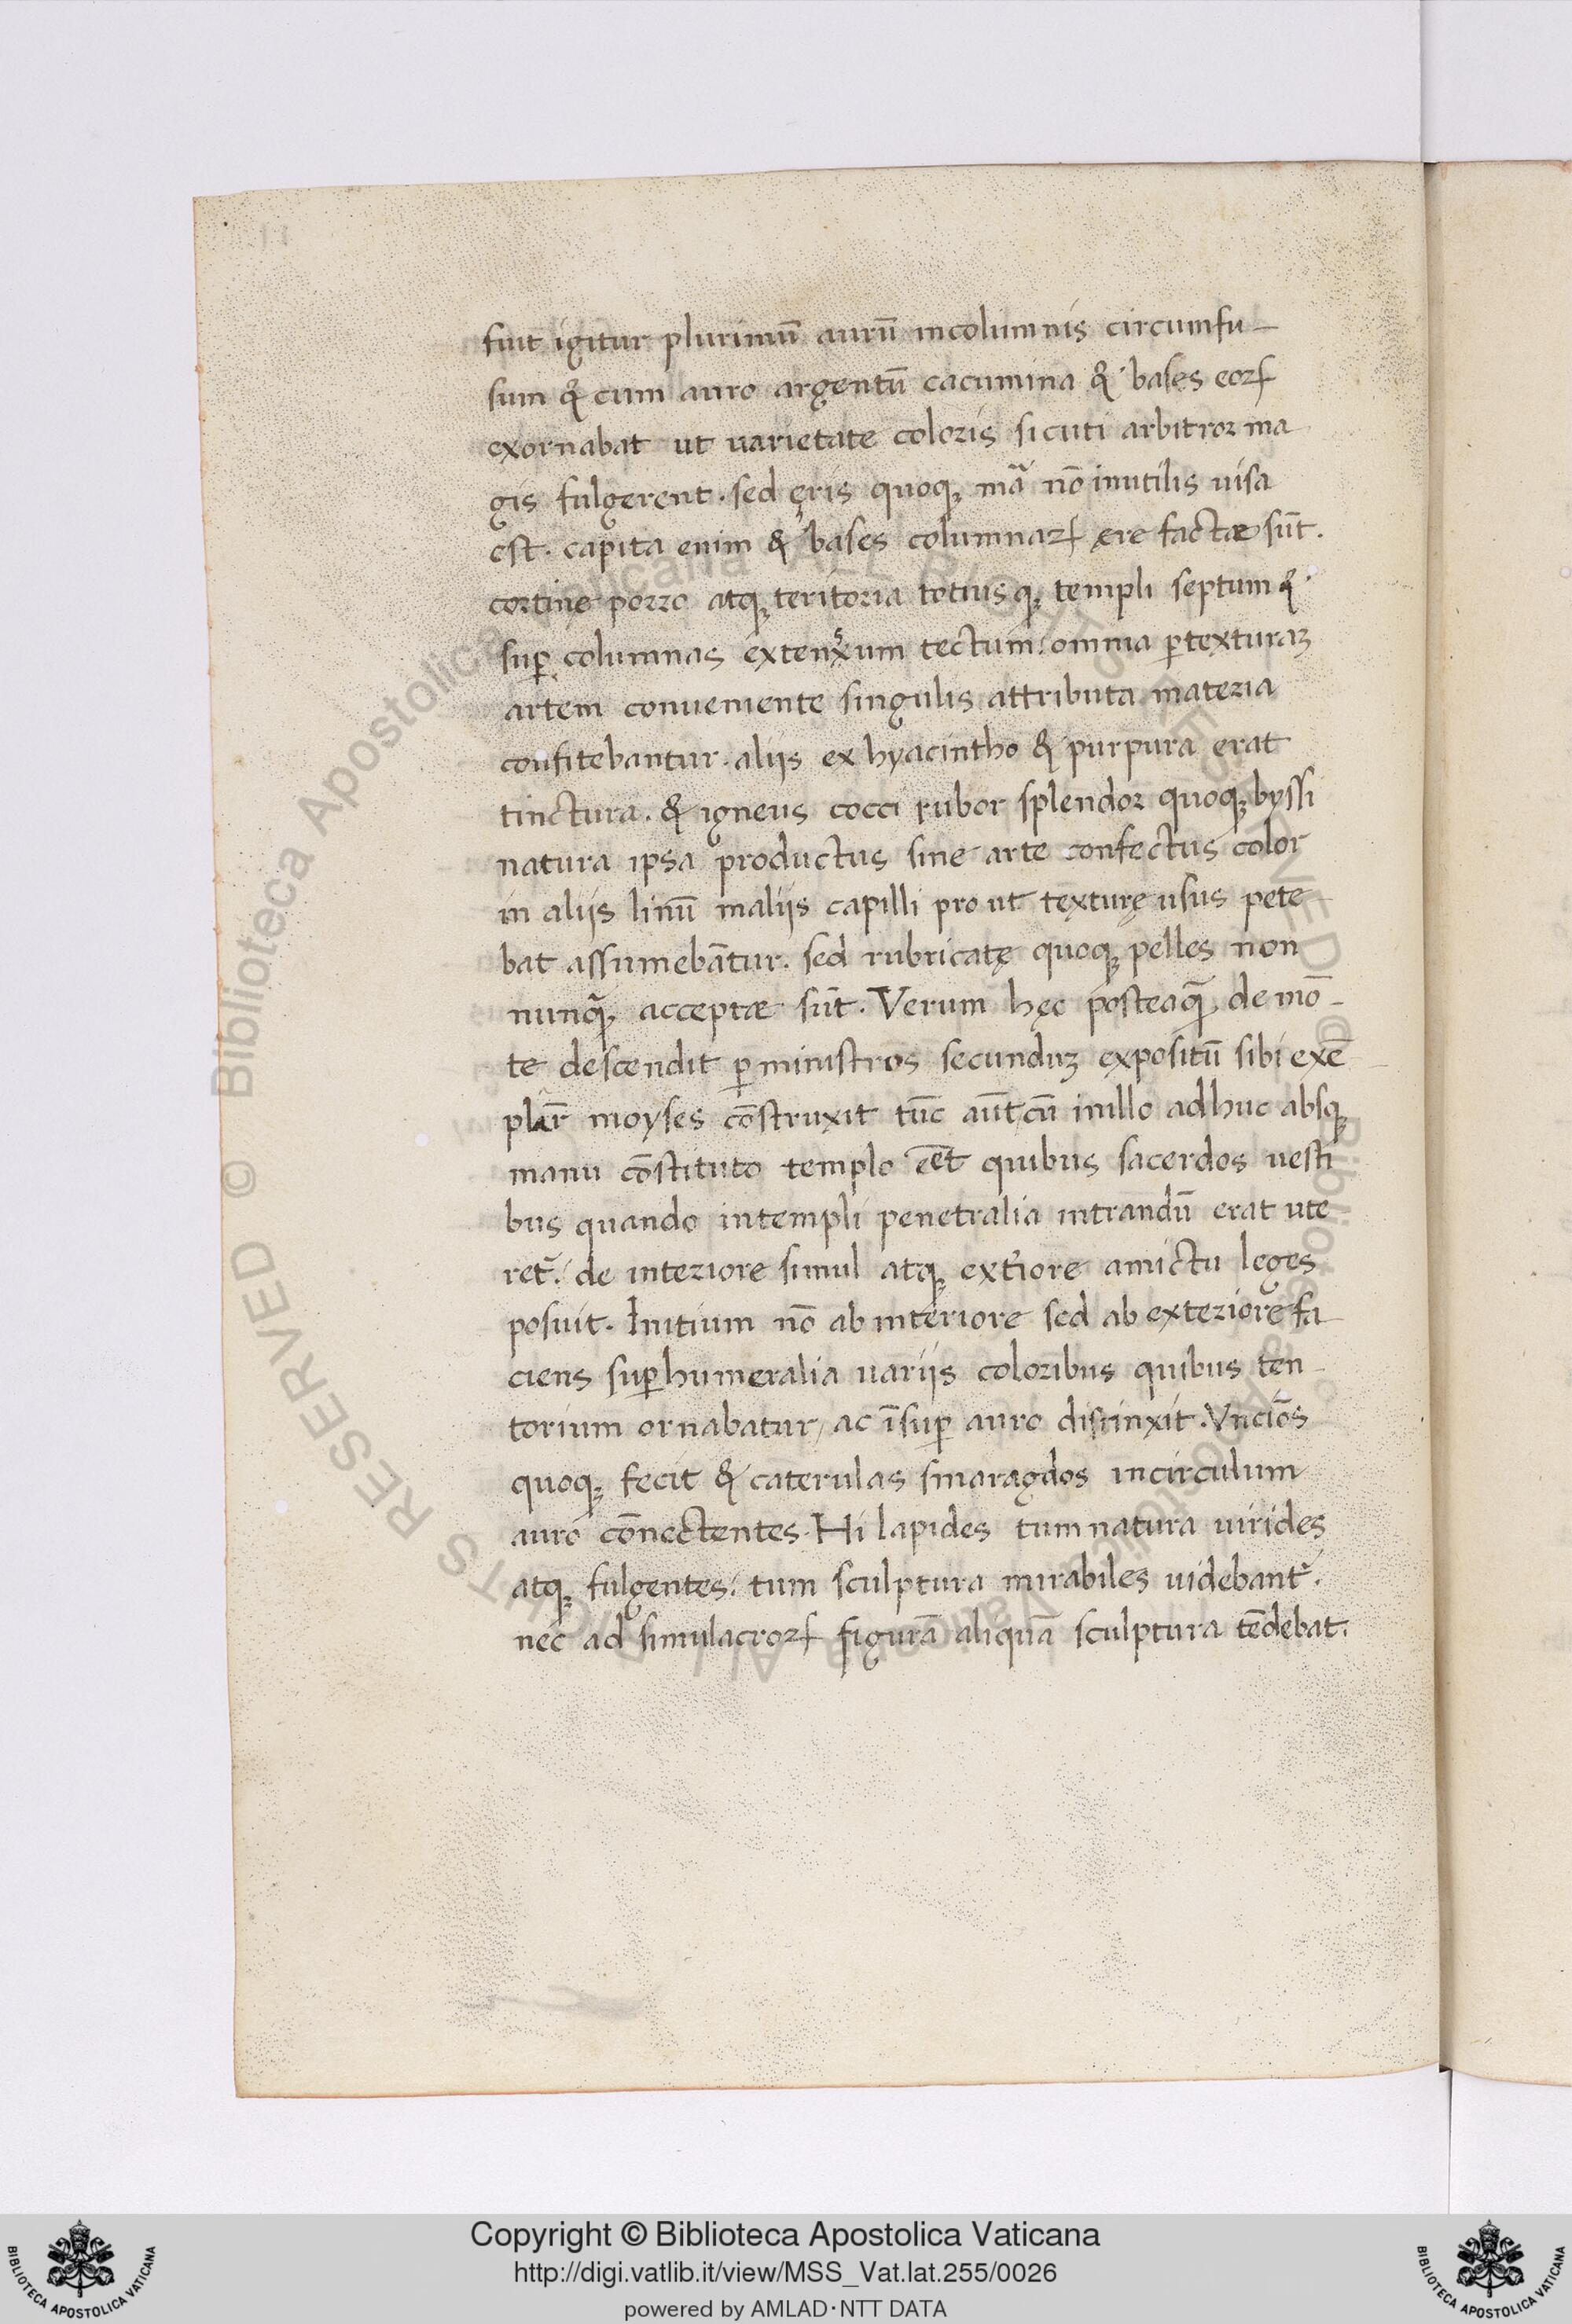 fuit igitur plurimū aurū incolumnis circumfu-
sum & cum auro argentū cacumina & bases eoꝝ
exornabat ut uarietate coloris sicuti arbitror ma
gis fulgerent. sed ęris quoqꝫ mã nō inutilis uisa
est. capita enim & bases columnaꝝ ęre factæ sūt.
cortinę porro atqꝫ teritoria totiusqꝫ templi septum &
suꝑ columnas extenxum tectum: omnia ꝑtexturaꝫ
artem conueniente singulis attributa materia
confitebantur. aliis ex hyacintho & purpura erat
tinctura. & igneus cocci rubor splendor quoqꝫ byssi
natura ipsa productus sine arte confectus color
in aliis linū inaliis capilli pro ut texturę usus pete
bat assumebātur. sed rubricatę quoqꝫ pelles non
nunq̃ꝫ acceptæ sūt. Verum hęc posteaq̃ꝫ de mō-
te descendit ꝑ ministros secunduꝫ expositū sibi exē
plar̃ moyses cōstruxit tūc aūt cū inillo adhuc absqꝫ
manu cōstituto templo eēt quibus sacerdos uesti
bus quando intempli penetralia intrandū erat ute
ret̃: de interiore simul atqꝫ ext̃iore amictu leges
posuit. Initium nō ab interiore sed ab exteriore fa
ciens suꝑhumeralia uariis coloribus quibus ten-
torium ornabatur, ac īsuꝑ auro distinxit. Vnciōs
quoqꝫ fecit & caterulas smaragdos incirculum
auro cōnectentes. Hi lapides tum natura uirides
atqꝫ fulgentes: tum sculptura mirabiles uidebant̃.
nec ad simulacroꝝ figurā aliquā sculptura tēdebat:
© Biblioteca Apostolica Vaticana ALL RIGHTS RESERVED
Copyright © Biblioteca Apostolica Vaticana
http://digi.vatlib.it/view/MSS_Vat.lat.255/0026
powered by AMLAD·NTT DATA
BIBLIOTECA APOSTOLICA VATICANA
BIBLIOTECA APOSTOLICA VATICANA